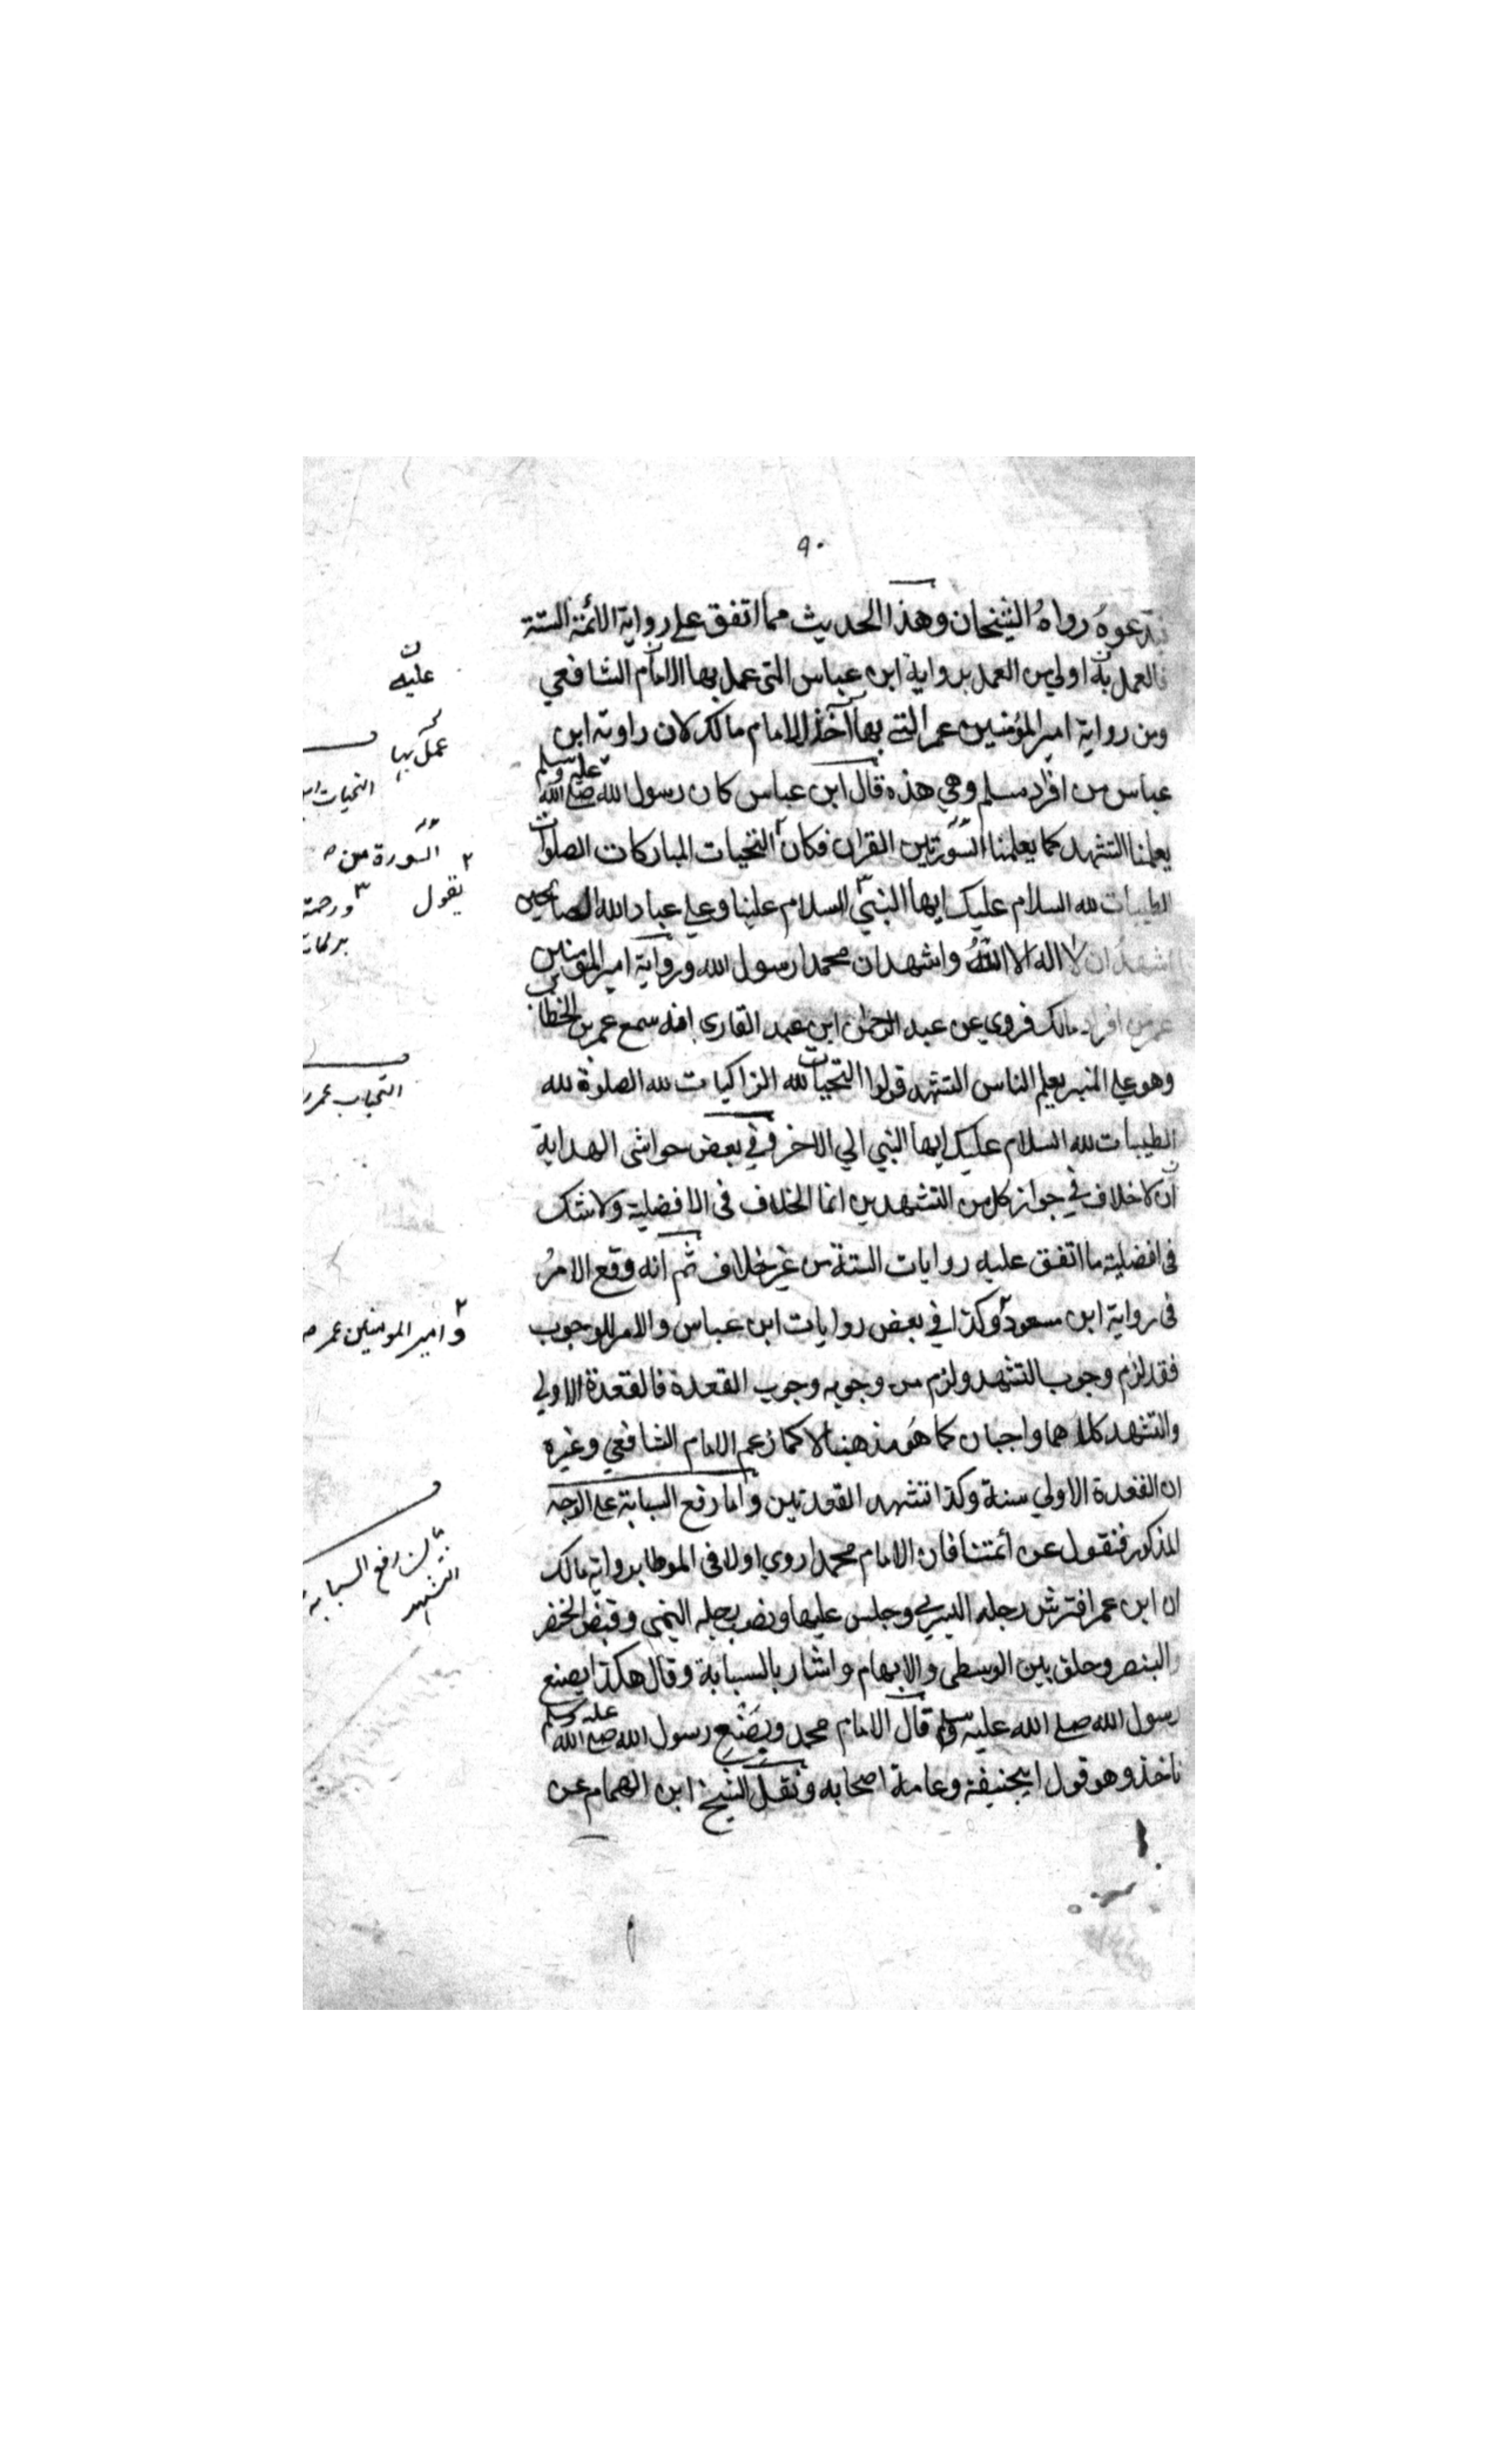 ٩٠
تدعوه رواهُ الشيخان وهذا الحديث مما اتفق علي رواية الائمة الستة
فالعمل به اولي من العمل برواية ابن عباس التي عمل بها الامام الشافعي
ومن رواية امير المؤمنين عمر التي بها آخذ الامام مالك لان راوية ابن
عباس من افراد مسلم وهي هذه قال ابن عباس كان رسول الله صلي الله عليه وسلم
يعلمنا التشهد كما يعلمنا السورتين القران فكان التحيات المباركات الصلوات
الطيبات لله السلام عليك ايها النبي السلام علينا وعلي عباد الله الصالحين
اشهد ان لا اله الا اللهُ واشهد ان محمدا رسول الله ورواية امير المؤمنين
عمر من افراد مالك فروي عن عبد الرحمن ابن عبد القاري انه سمع عمر بن الخطاب
وهو علي المنبر يعلم الناس التشهد قولوا التحيات لله الزاكيات لله الصلوة لله
الطيبات لله السلام عليك ايها النبي الي الاخر وفي بعض حواشي الهداية
ان لا خلاف في جواز كل من التشهدين انما الخلاف في الافضلية ولا شك
في افضلية ما اتفق عليه روايات الستة من غير خلاف ثم انه وقع الامرُ
في رواية ابن مسعود وكذا في بعض روايات ابن عباس والامر للوجوب
فقد لزم وجوب التشهد ولزم من وجوبه وجوب القعدة فالقعدة الاولي
والتشهد كلاهما واجبان كما هُو مذهبنا لا كما زعم الامام الشافعي وغيره
ان القعدة الاولي سنة وكذا تشهد القعدتين واما رفع السبابة علي الوجه
المذكور فنقول عن أئمتنا فان الامام محمدا روي اولا في الموطا برواية مالك
ان ابن عمر افترش رجله اليسري وجلس عليها ونصب رجله اليمني وقبض الخنصر
والبنصر وحلق بين الوسطي والابهام واشار بالسبابة وقال هكذا يصنع
رسول الله صلي الله عليه وسلم قال الامام محمد وبصنع رسول الله صلي الله عليه وسلم
ناخذ وهو قول ابيحنيفة وعامة اصحابه ونقل الشيخ ابن الهمام عن
عليه
عمل بها
التحيات
٢ السورة من
يقول ٣ ورحمة
التحيات عمر
٢ وامير المومنين عمر
رفع السبابة
التشهد